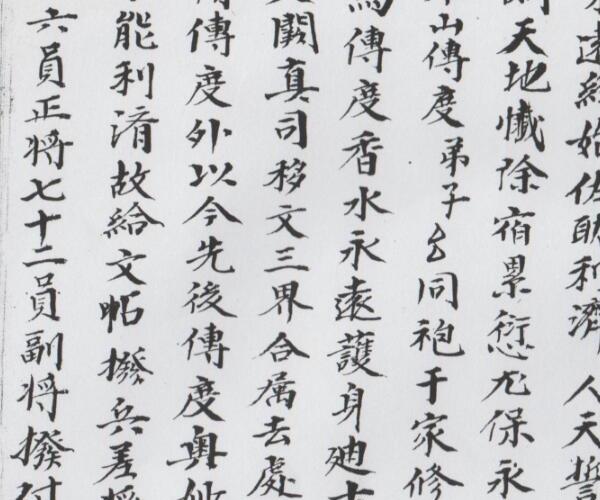 遠經始佐助利濟人天誓
天地懺除宿累愆尤保永
山傳度弟子么同袍千家修
為傳度香水永遠護身廸
闕真司移文三界合属去處
傳度外以今先後傳度奥
能利濟故給文帖撥兵差
六員正将七十二員副将撥付